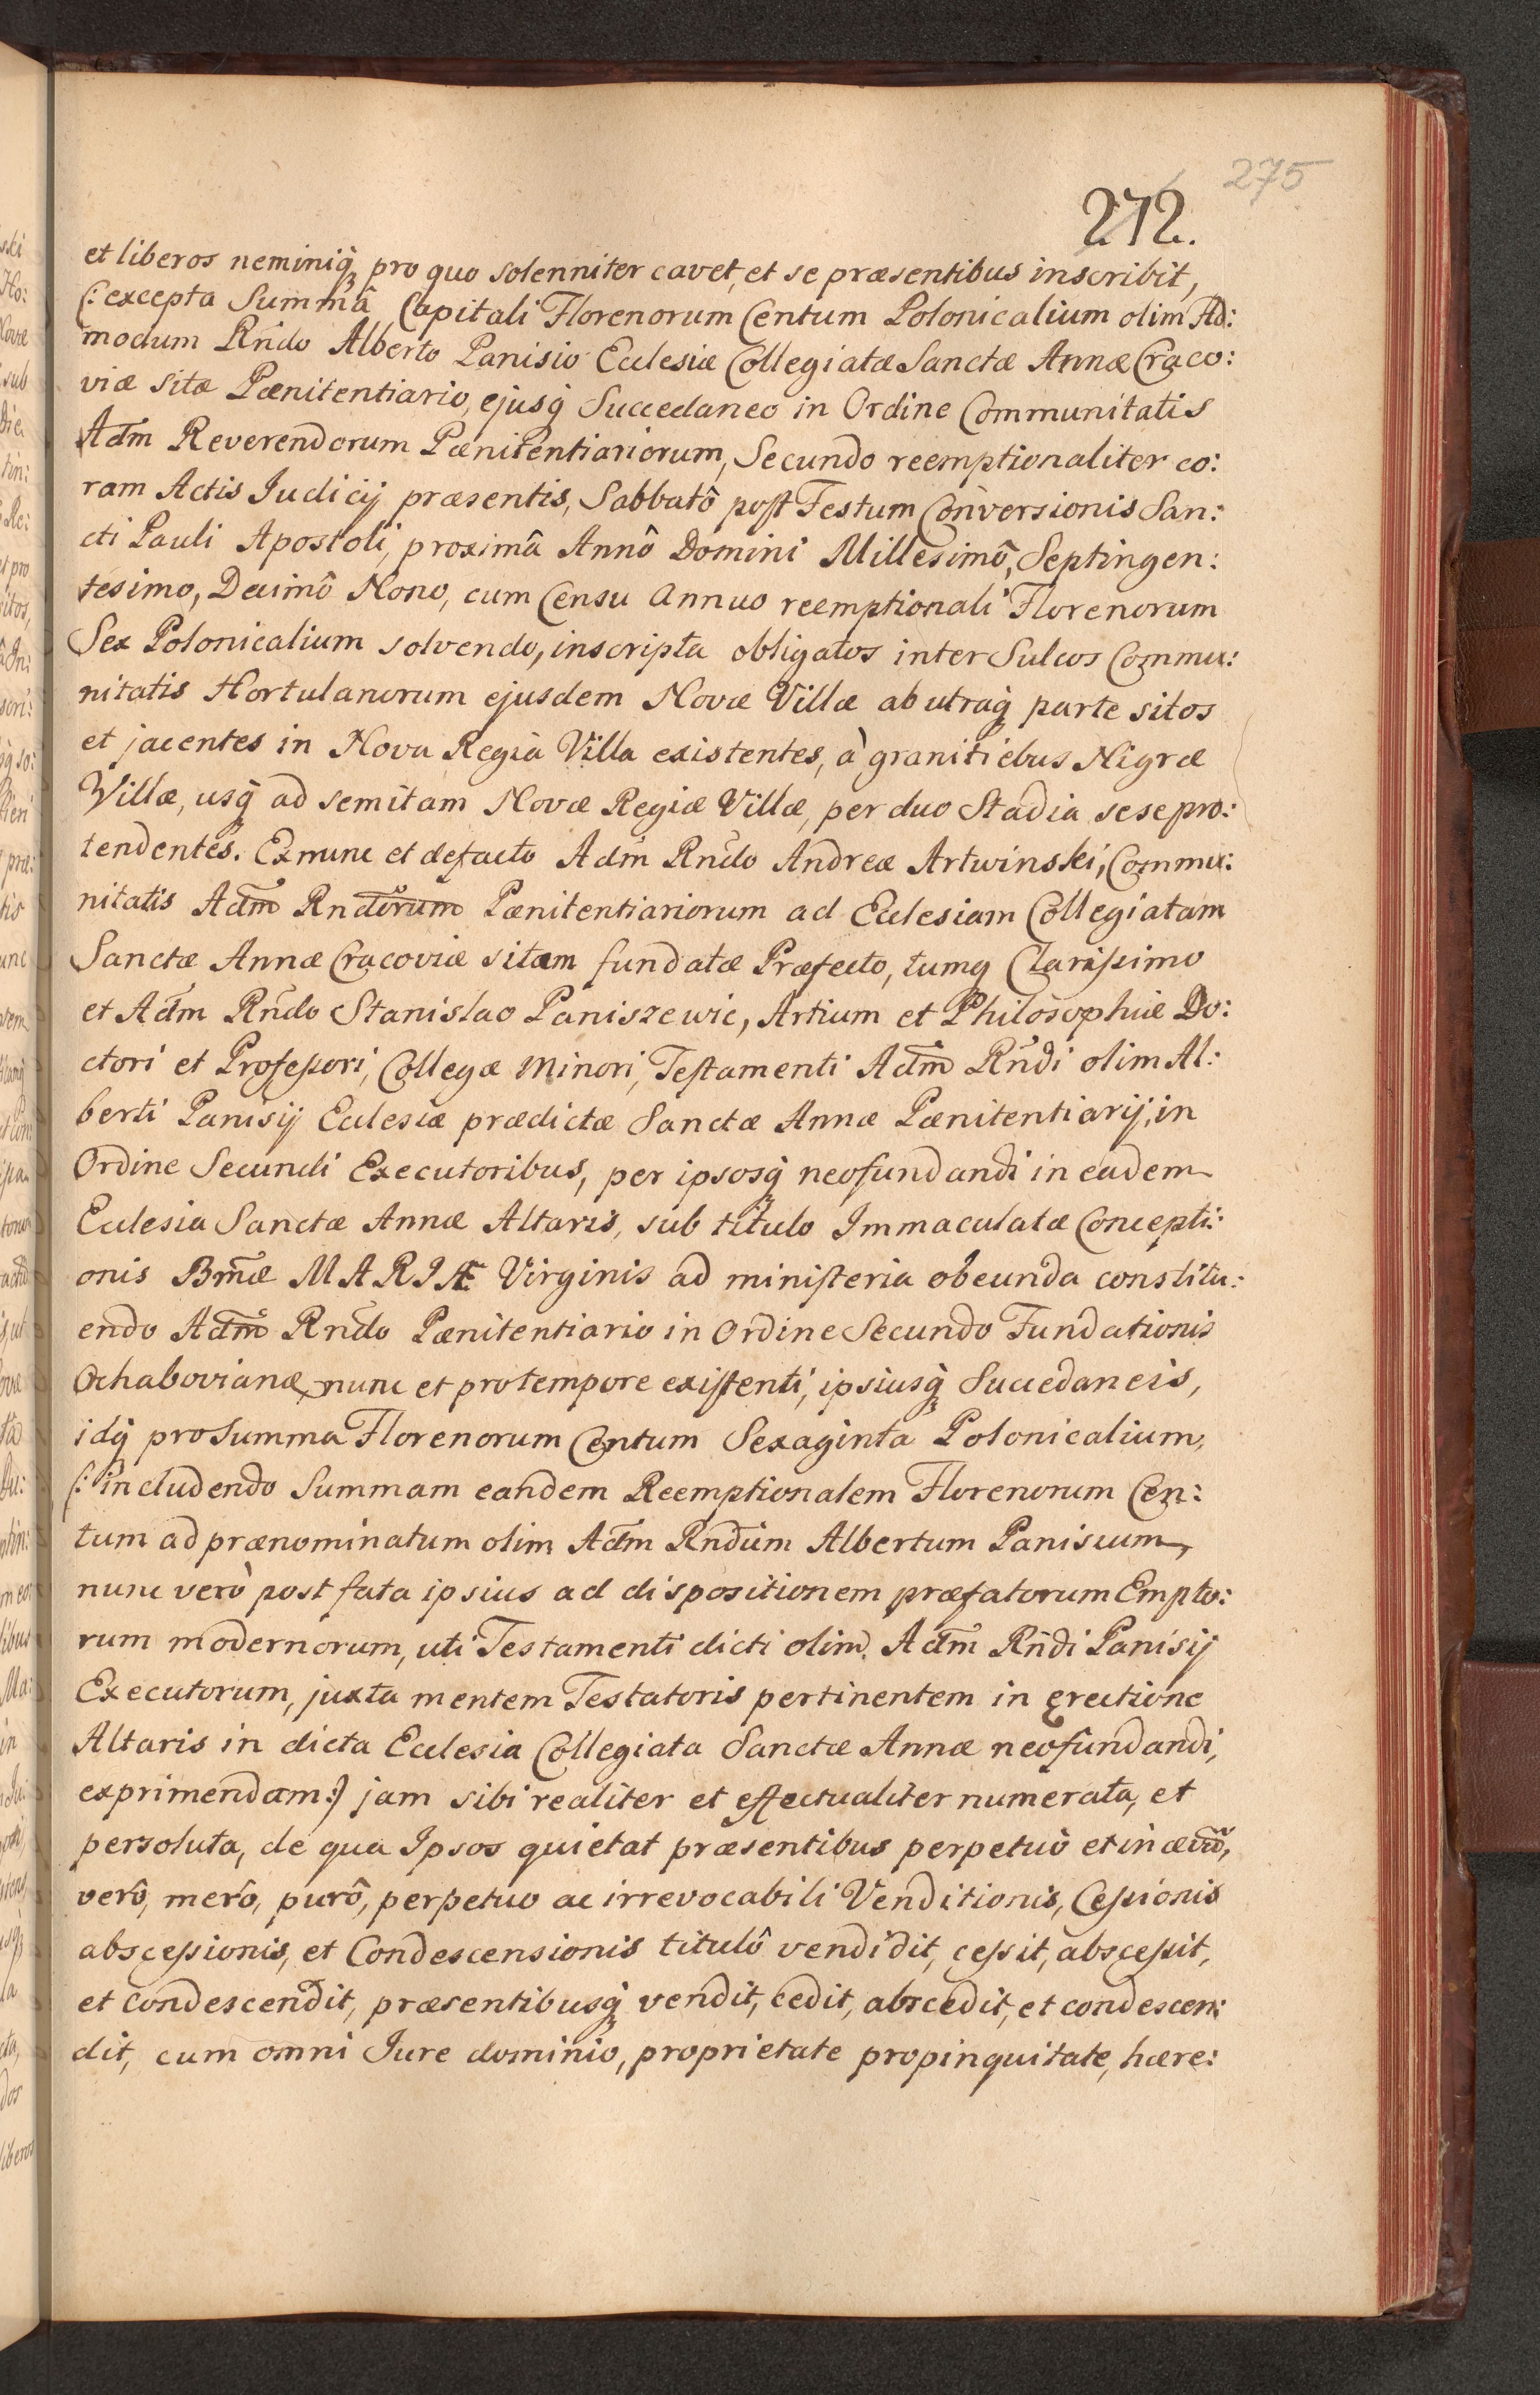 275
272.
et liberos neminiq́ꝫ pro quo solenniter cavet, et se præsentibus inscribit,
(: excepta Summâ Capitali Florenorum Centum Polonicalium olim Ad:
modum Rńdo Alberto Panisio Ecclesiæ Collegiatæ Sanctæ Annæ Craco:
viæ sitæ Pœnitentiario, ejusq́ Succedaneo in Ordine Communitatis
Adm̄ Reverendorum Pœnitentiariorum, Secundo reemptionaliter co:
ram Actis Iudicij præsentis, Sabbatô post Festum Conversionis San:
cti Pauli Apostoli, proximâ Annô Domini Millesimô, Septingen:
tesimo, Decimô Nono, cum Censu annuo reemptionali Florenorum
Sex Polonicalium solvendo, inscripta obligatos inter Sulcos Commu:
nitatis Hortulanorum ejusdem Novæ Villæ ab utraq́ parte sitos
et jacentes in Nova Regia Villa existentes, à granitiebus Nigræ
Villæ, usq́ ad semitam Novæ Regiæ Villæ, per duo Stadia sese pro:
tendentes. Ex nunc et defacto Adm̄ Rńdo Andreæ Artwinski, Commu:
nitatis Adm̄ Rndorum Pœnitentiariorum ad Ecclesiam Collegiatam
Sanctæ Annæ Cracoviæ sitam fundatæ Præfecto, tumq Clarissimo
et Adm̄ Rńdo Stanislao Paniszewic, Artium et Philosophiæ Do:
ctori et Professori, Collegæ Minori, Testamenti Adm̄ Rńdi olim Al:
berti Panisij Ecclesiæ prædictæ Sanctæ Annæ Pœnitentiarij, in
Ordine Secundi Executoribus, per ipsosq́ neofundandi in eadem
Ecclesia Sanctæ Annæ Altaris, sub titulo Immaculatæ Concepti:
onis Bmæ̃ MARIÆ Virginis ad ministeria obeunda constitu:
endo Adm̄ Rńdo Pœnitentiario in Ordine Secundo Fundationis
Ochabovianæ, nunc et pro tempore existenti, ipsiusq́ꝫ Succedaneis,
idq́ pro Summa Florenorum Centum Sexaginta Polonicalium,
(: includendo Summam eandem Reemptionalem Florenorum Cen:
tum ad prænominatum olim Adm̄ Rńdum Albertum Panisium,
nunc verò post fata ipsius ad dispositionem præfatorum Empto:
rum modernorum, uti Testamenti dicti olim Adm̄ Rńdi Panisij
Executorum, juxta mentem Testatoris pertinentem in erectione
Altaris in dicta Ecclesia Collegiata Sanctæ Annæ neofundandi,
exprimendam :) jam sibi realiter et effectualiter numerata, et
persoluta, de qua Ipsos quietat præsentibus perpetuò et in ævũ,
verô, merô, purô, perpetuo ac irrevocabili Venditionis, Cessionis
abscessionis, et Condescensionis titulô vendidit, cessit, abscessit,
et condescendit, præsentibusq́ꝫ vendit, cedit, abscedit, et condescen:
dit, cum omni Iure dominio, proprietate propinquitate, hære: